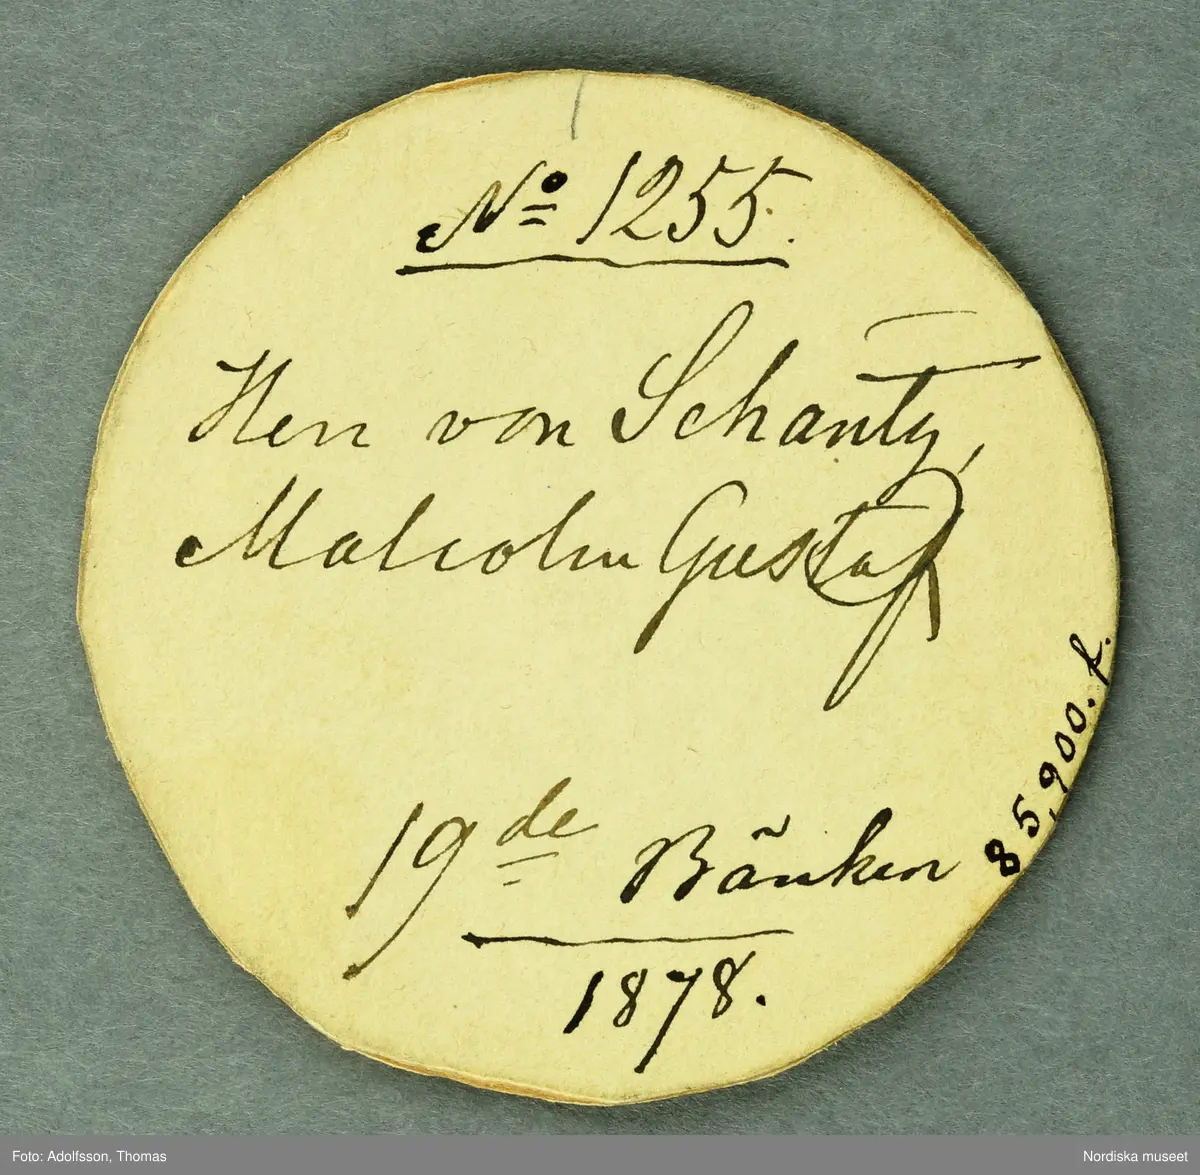 No 1255.
Herr von Schantz,
Malcolm Gustaf
19de Bänken
1878.
85,900. f.
Foto: Adolfsson, Thomas
Nordiska museet